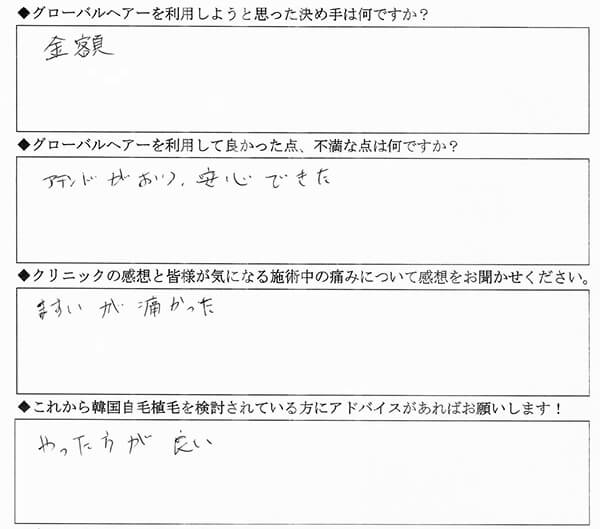 ◆グローバルヘアーを利用しようと思った決め手は何ですか？
金額
◆グローバルヘアーを利用して良かった点、不満な点は何ですか？
アテンドがあり、安心できた
◆クリニックの感想と皆様が気になる施術中の痛みについて感想をお聞かせください。
ますいが痛かった
◆これから韓国自毛植毛を検討されている方にアドバイスがあればお願いします！
やった方が良い